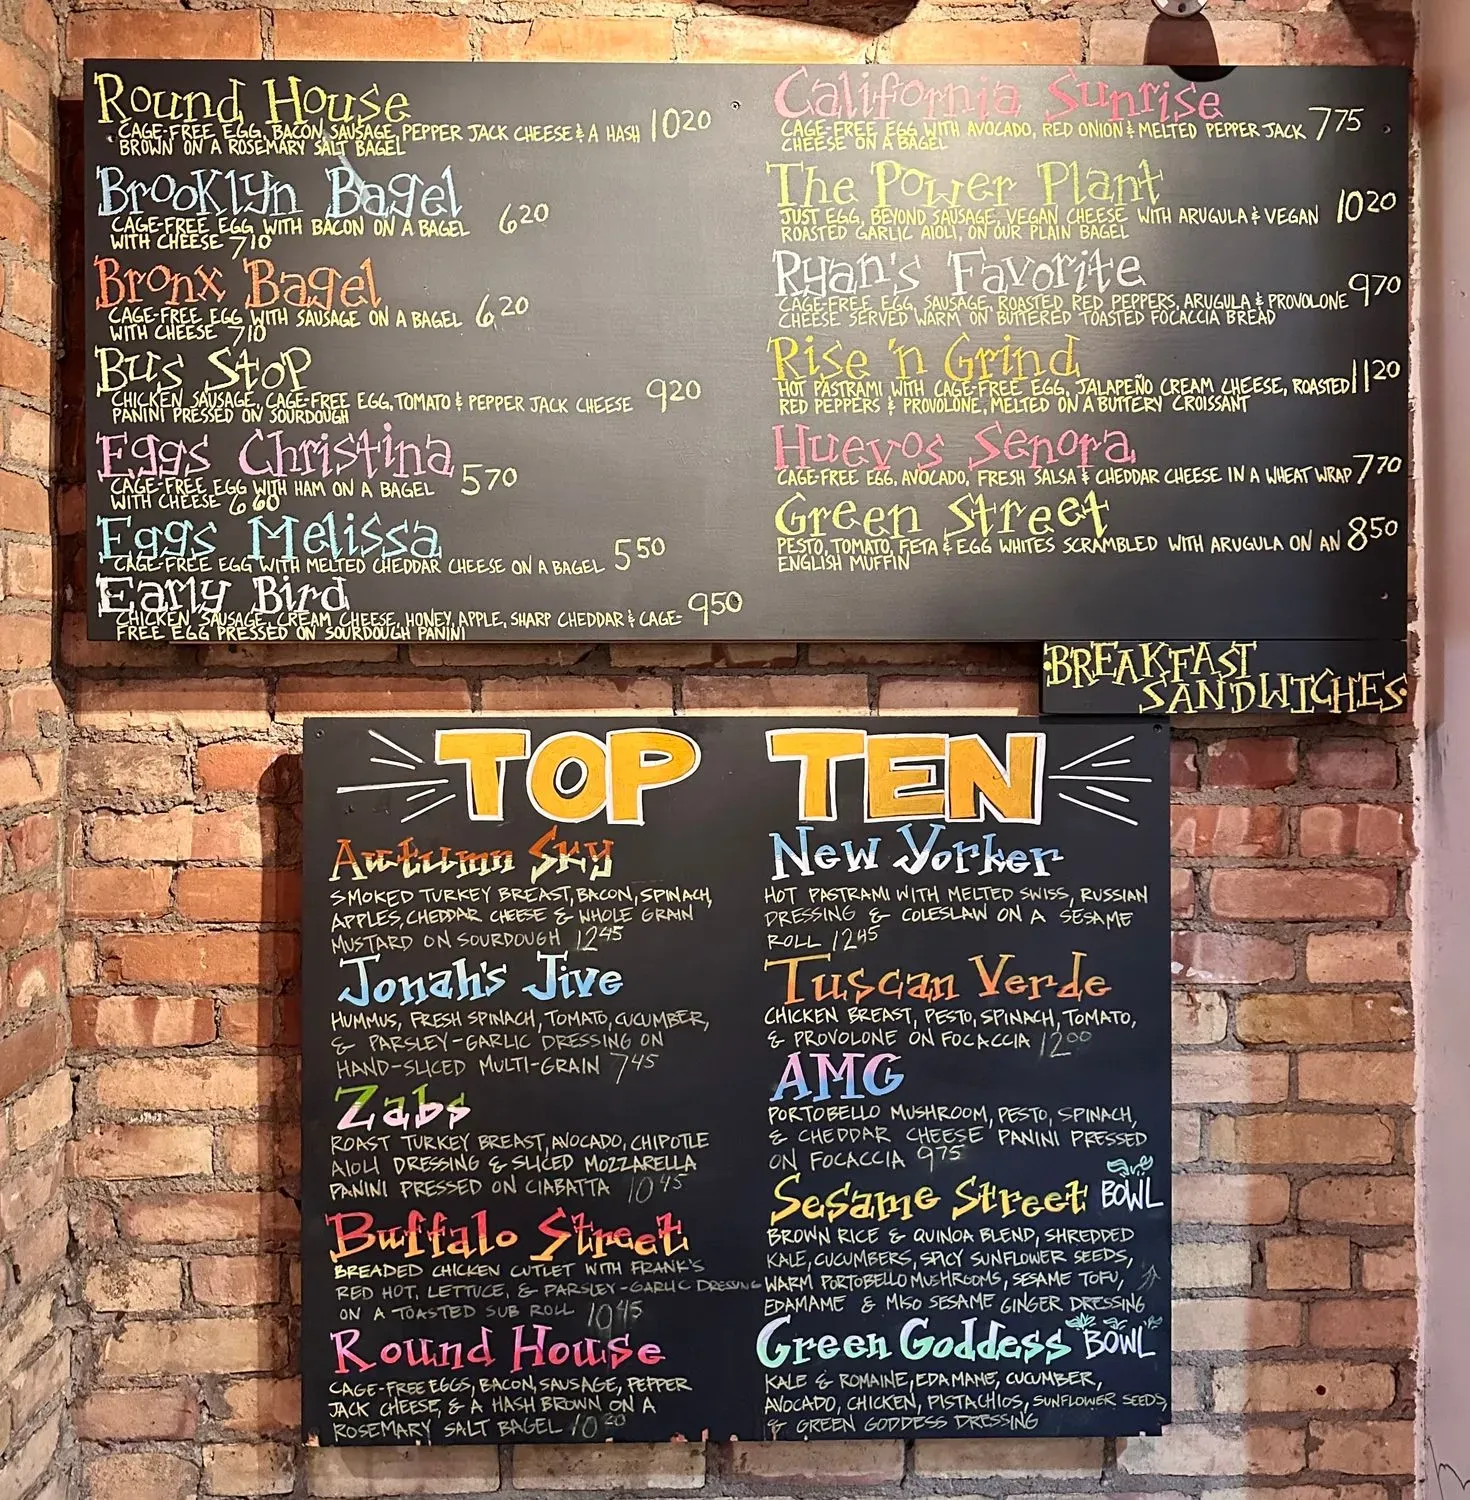 Round House
CAGE-FREE EGG, BACON, SAUSAGE, PEPPER JACK CHEESE & A HASH 10.20
BROWN ON A ROSEMARY SALT BAGEL
Brooklyn Bagel
CAGE-FREE EGG WITH BACON ON A BAGEL 6.20
WITH CHEESE 7.10
Bronx Bagel
CAGE-FREE EGG WITH SAUSAGE ON A BAGEL 6.20
WITH CHEESE 7.10
Bus Stop
CHICKEN SAUSAGE, CAGE-FREE EGG, TOMATO & PEPPER JACK CHEESE 9.20
PANINI PRESSED ON SOURDOUGH
Eggs Christina
CAGE-FREE EGG WITH HAM ON A BAGEL 5.70
WITH CHEESE 6.60
Eggs Melissa
CAGE-FREE EGG WITH MELTED CHEDDAR CHEESE ON A BAGEL 5.50
Early Bird
CHICKEN SAUSAGE, CREAM CHEESE, HONEY, APPLE, SHARP CHEDDAR & CAGE- 9.50
FREE EGG PRESSED ON SOURDOUGH PANINI
California Sunrise
CAGE-FREE EGG WITH AVOCADO, RED ONION & MELTED PEPPER JACK 7.75
CHEESE ON A BAGEL
The Power Plant
JUST EGG, BEYOND SAUSAGE, VEGAN CHEESE WITH ARUGULA & VEGAN 10.20
ROASTED GARLIC AIOLI, ON OUR PLAIN BAGEL
Ryan's Favorite
CAGE-FREE EGG, SAUSAGE, ROASTED RED PEPPERS, ARUGULA & PROVOLONE 9.70
CHEESE SERVED WARM ON BUTTERED TOASTED FOCACCIA BREAD
Rise 'n Grind
HOT PASTRAMI WITH CAGE-FREE EGG, JALAPEÑO CREAM CHEESE, ROASTED 11.20
RED PEPPERS & PROVOLONE, MELTED ON A BUTTERY CROISSANT
Huevos Senora
CAGE-FREE EGG, AVOCADO, FRESH SALSA & CHEDDAR CHEESE IN A WHEAT WRAP 7.70
Green Street
PESTO, TOMATO, FETA & EGG WHITES SCRAMBLED WITH ARUGULA ON AN 8.50
ENGLISH MUFFIN
BREAKFAST
SANDWICHES
TOP TEN
Autumn Sky
SMOKED TURKEY BREAST, BACON, SPINACH,
APPLES, CHEDDAR CHEESE & WHOLE GRAIN
MUSTARD ON SOURDOUGH 12.45
Jonah's Jive
HUMMUS, FRESH SPINACH, TOMATO, CUCUMBER,
& PARSLEY-GARLIC DRESSING ON
HAND-SLICED MULTI-GRAIN 7.45
Zabs
ROAST TURKEY BREAST, AVOCADO, CHIPOTLE
AIOLI DRESSING & SLICED MOZZARELLA
PANINI PRESSED ON CIABATTA 10.45
Buffalo Street
BREADED CHICKEN CUTLET WITH FRANK'S
RED HOT, LETTUCE, & PARSLEY-GARLIC DRESSING
ON A TOASTED SUB ROLL 10.45
Round House
CAGE-FREE EGGS, BACON, SAUSAGE, PEPPER
JACK CHEESE, & A HASH BROWN ON A
ROSEMARY SALT BAGEL 10.20
New Yorker
HOT PASTRAMI WITH MELTED SWISS, RUSSIAN
DRESSING & COLESLAW ON A SESAME
ROLL 12.45
Tuscan Verde
CHICKEN BREAST, PESTO, SPINACH, TOMATO,
& PROVOLONE ON FOCACCIA 12.00
AMG
PORTOBELLO MUSHROOM, PESTO, SPINACH,
& CHEDDAR CHEESE PANINI PRESSED
ON FOCACCIA 9.75
Sesame Street BOWL
BROWN RICE & QUINOA BLEND, SHREDDED
KALE, CUCUMBERS, SPICY SUNFLOWER SEEDS,
WARM PORTOBELLO MUSHROOMS, SESAME TOFU,
EDAMAME & MISO SESAME GINGER DRESSING
Green Goddess BOWL
KALE & ROMAINE, EDAMAME, CUCUMBER,
AVOCADO, CHICKEN, PISTACHIOS, SUNFLOWER SEEDS,
& GREEN GODDESS DRESSING